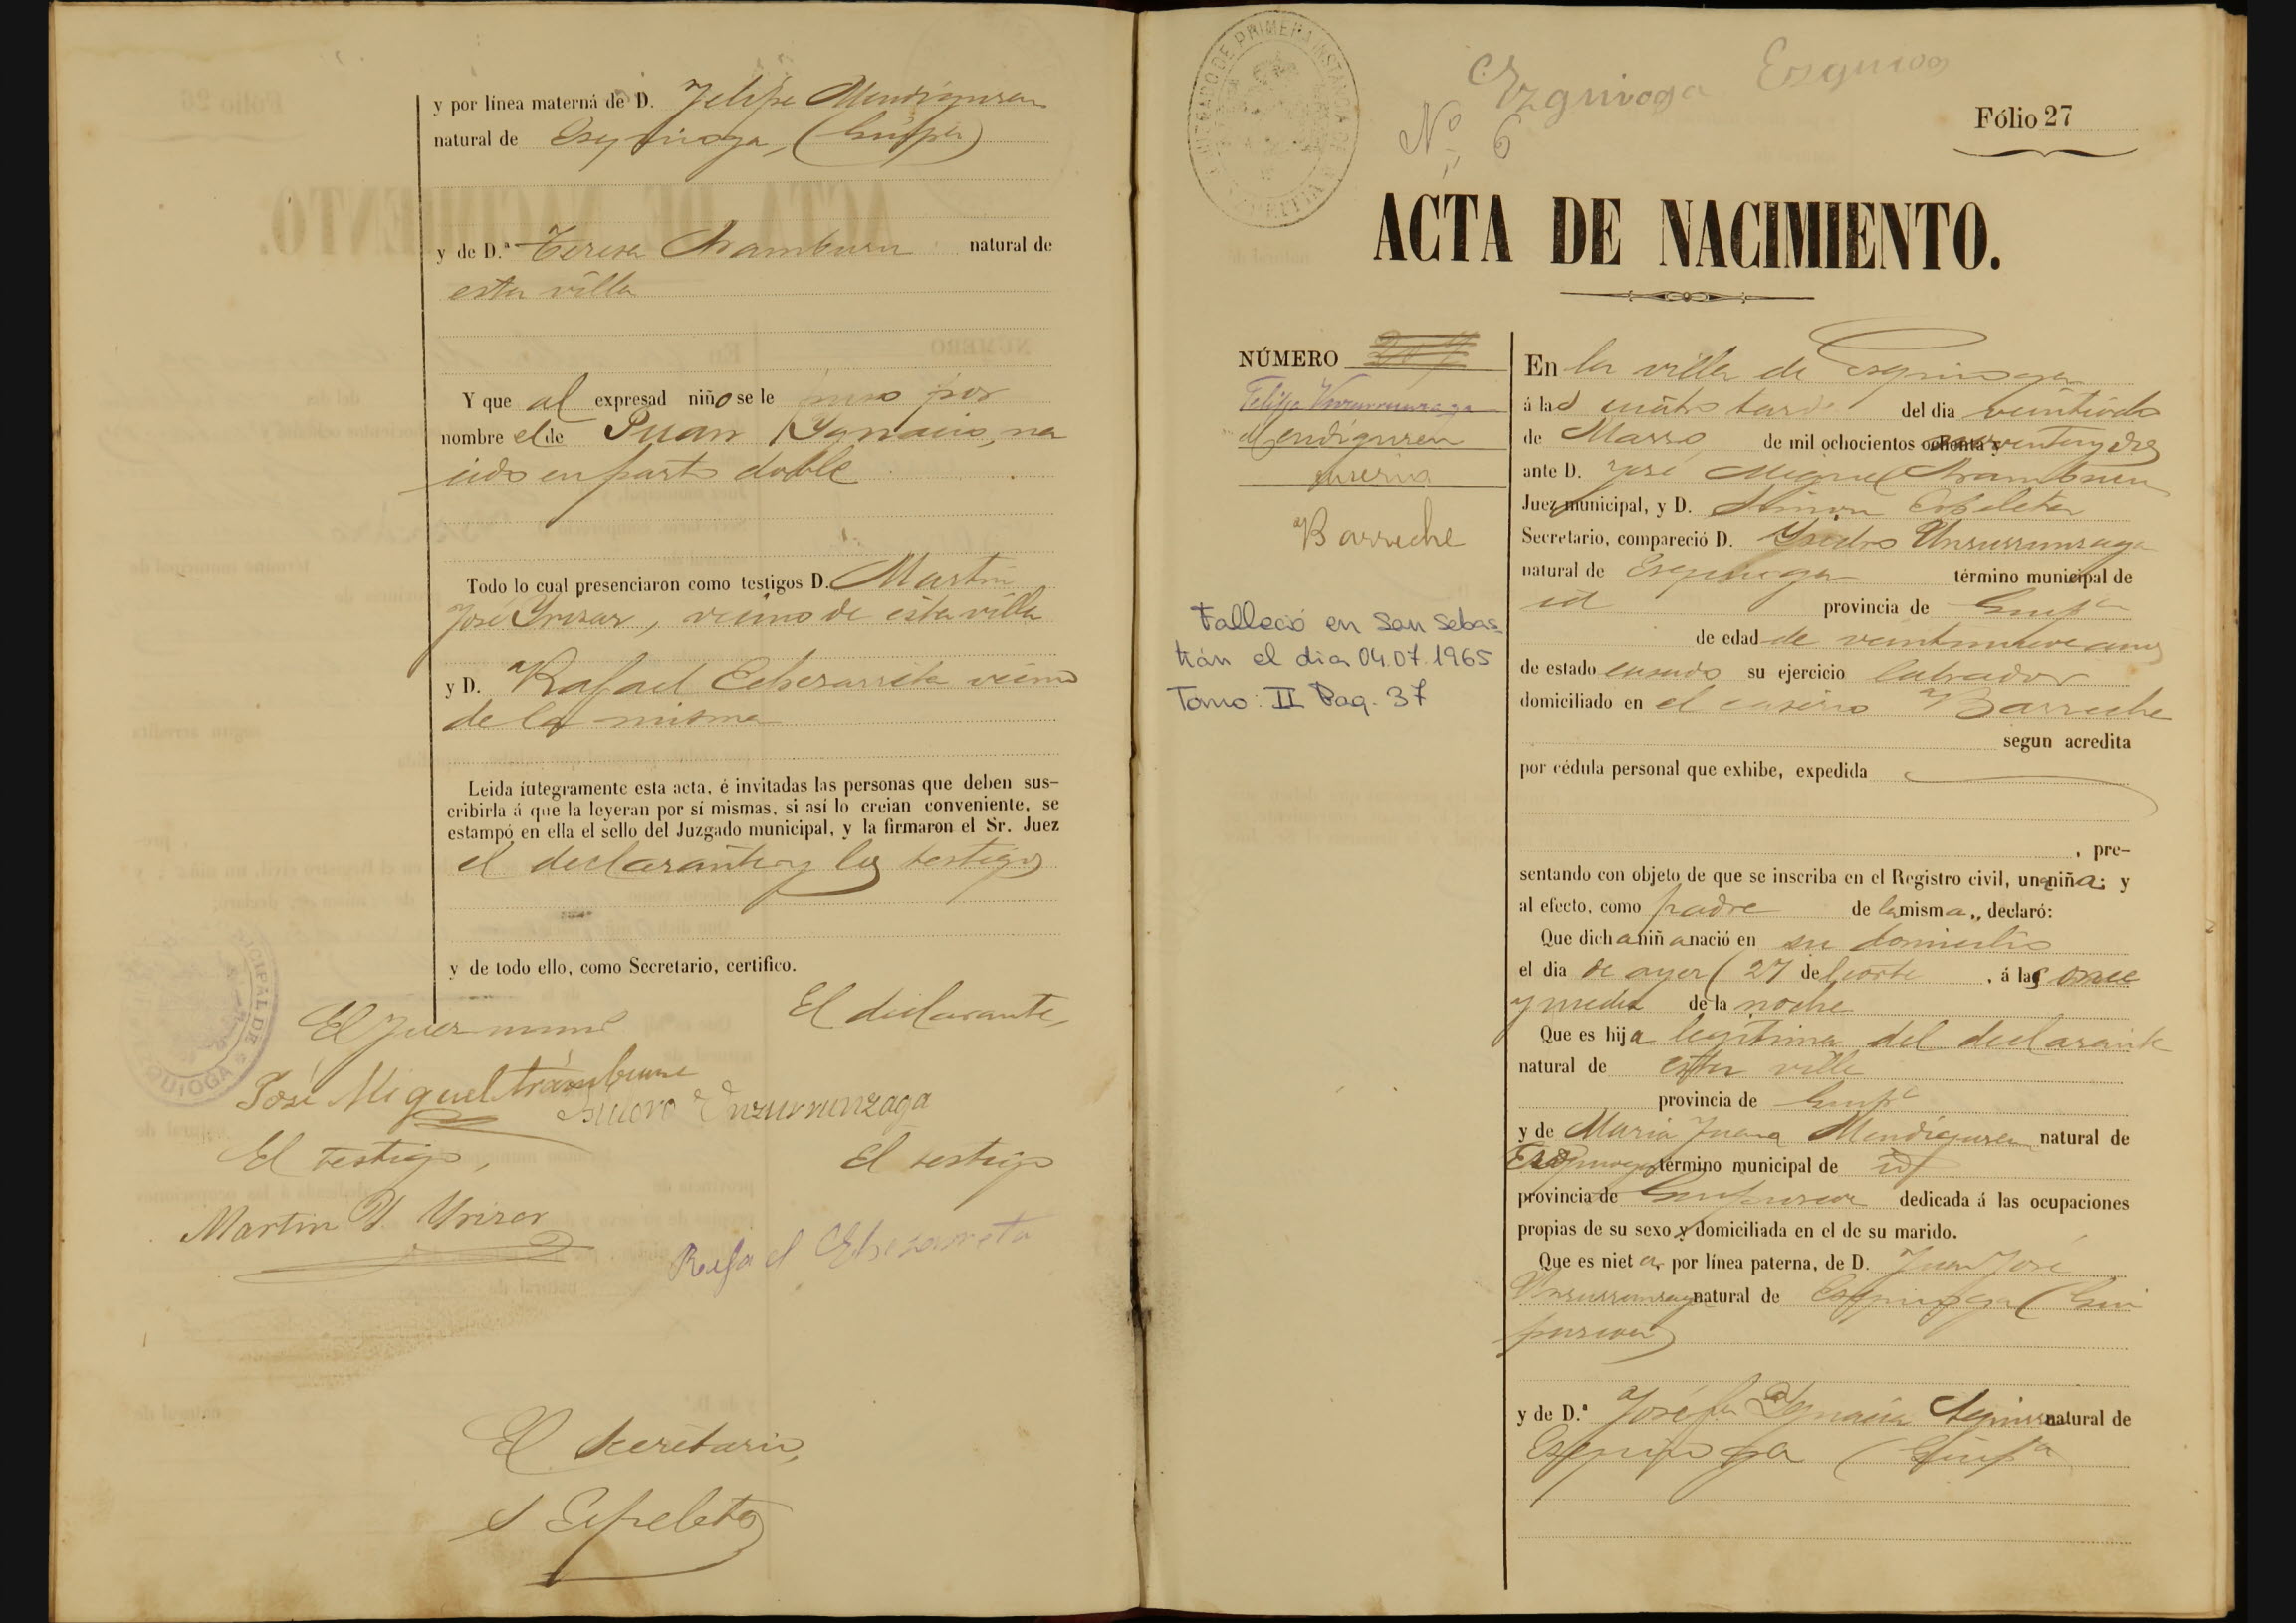 y por línea materna de D. Felipe Mendiguren
natural de Ezquioga, (Guipa)
y de D.ª Teresa Aramburu natural de
esta villa
Y que al expresad niño se le puso por
nombre el de Juan Ygnacio, na
cido en parto doble
Todo lo cual presenciaron como testigos D. Martin
José Yrizar, vecino de esta villa
y D. Rafael Echezarreta vecino
de la misma
Leida integramente esta acta, é invitadas las personas que deben sus-
cribirla á que la leyeran por sí mismas, si así lo creian conveniente, se
estampó en ella el sello del Juzgado municipal, y la firmaron el Sr. Juez
el declarante y los testigos
y de todo ello, como Secretario, certifico.
El Juez munl
El declarante,
José Miguel Aramburu
Ysidro Unzurrunzaga
El testigo,
El testigo
Martin J. Yrizar
Rafael Echezarreta
El Secretario,
S Ezpeleta
JUZGADO DE PRIMERA INSTANCIA DE AZPEITIA
Ezquioga Ezquioga
Nº 6
Fólio 27
ACTA DE NACIMIENTO.
NÚMERO
Felipa Unzurrunzaga
Mendiguren
Caserio
Barreche
Falleció en San Sebas-
tián el dia 04.07.1965
Tomo: II Pag. 37
En la villa de Ezquioga
á las cuatro tarde del dia veintiocho
de Marzo de mil ochocientos ochenta y noventa y dos
ante D. José Miguel Aramburu
Juez municipal, y D. Simon Ezpeleta
Secretario, compareció D. Ysidro Unzurrunzaga
natural de Ezquioga término municipal de
id provincia de Guipa
de edad de veintinueve años
de estado casado su ejercicio labrador
domiciliado en el caserio Barreche
segun acredita
por cédula personal que exhibe, expedida
, pre-
sentando con objeto de que se inscriba en el Registro civil, una niña; y
al efecto, como padre de la misma,, declaró:
Que dicha niña nació en su domicilio
el dia de ayer (27 del corte , á las once
y media de la noche
Que es hija legítima del declarante
natural de esta villa
provincia de Guipa
y de Maria Juana Mendiguren natural de
Ezquioga término municipal de id
provincia de Guipuzcoa dedicada á las ocupaciones
propias de su sexo y domiciliada en el de su marido.
Que es nieta, por línea paterna, de D. Juan José
Unzurrunzaga natural de Ezquioga (Gui
puzcoa)
y de D.ª Josefa Ygnacia natural de
Ezquioga (Guipa